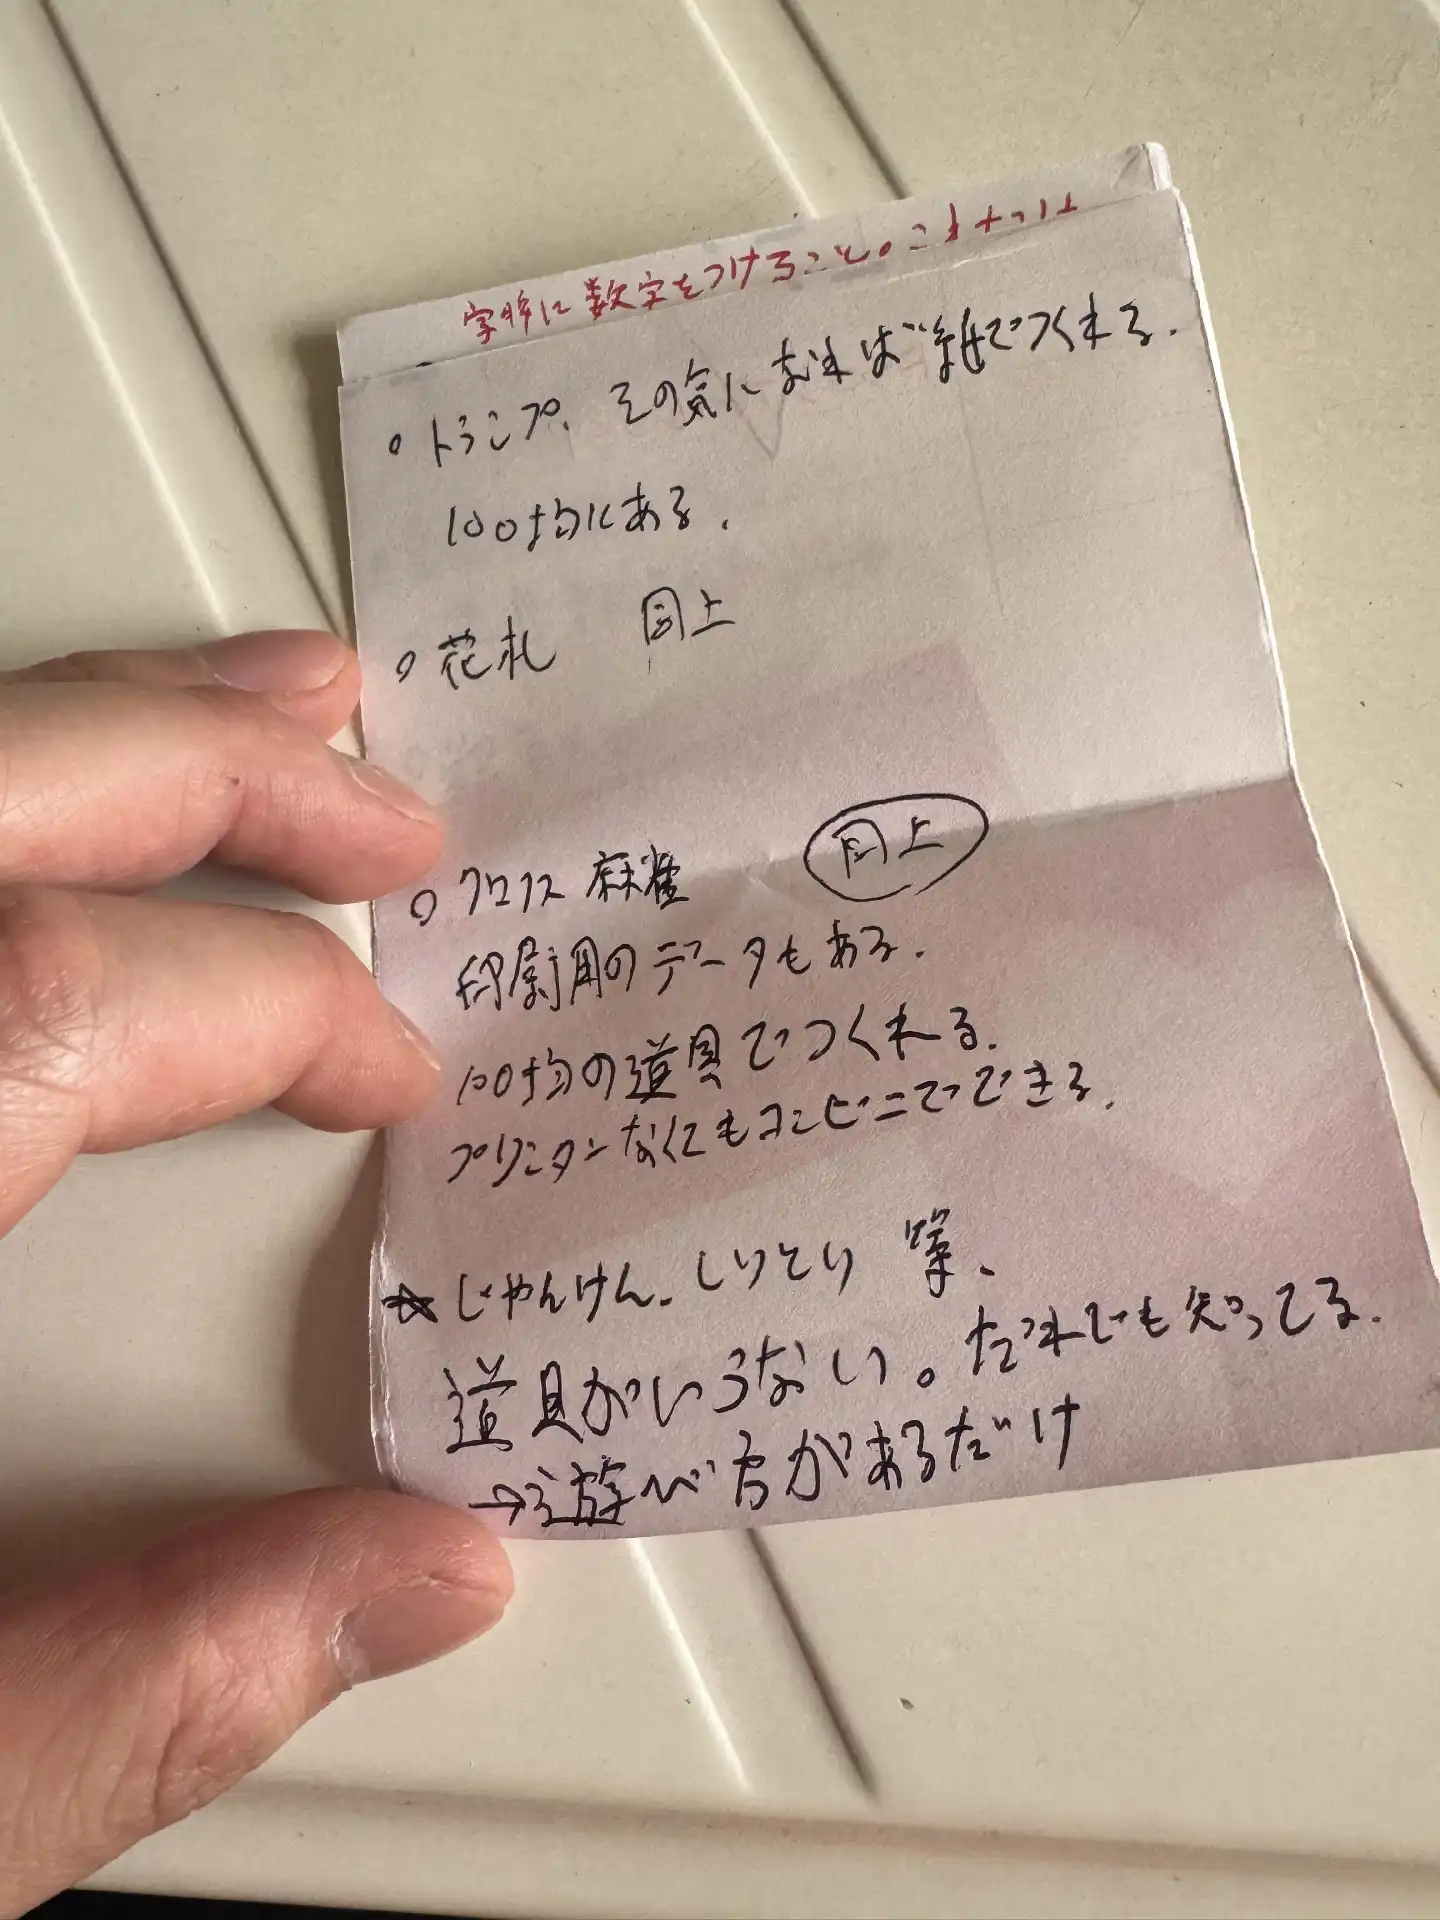 字牌に数字をつけること。これだけ
○トランプ、その気になれば紙でつくれる.
100均にある.
○花札 同上
○クロス麻雀 同上
印刷用のデータもある.
100均の道具でつくれる.
プリンターなくてもコンビニでできる.
☆じゃんけん、しりとり 等、
道具がいらない。だれでも知ってる.
→遊び方があるだけ